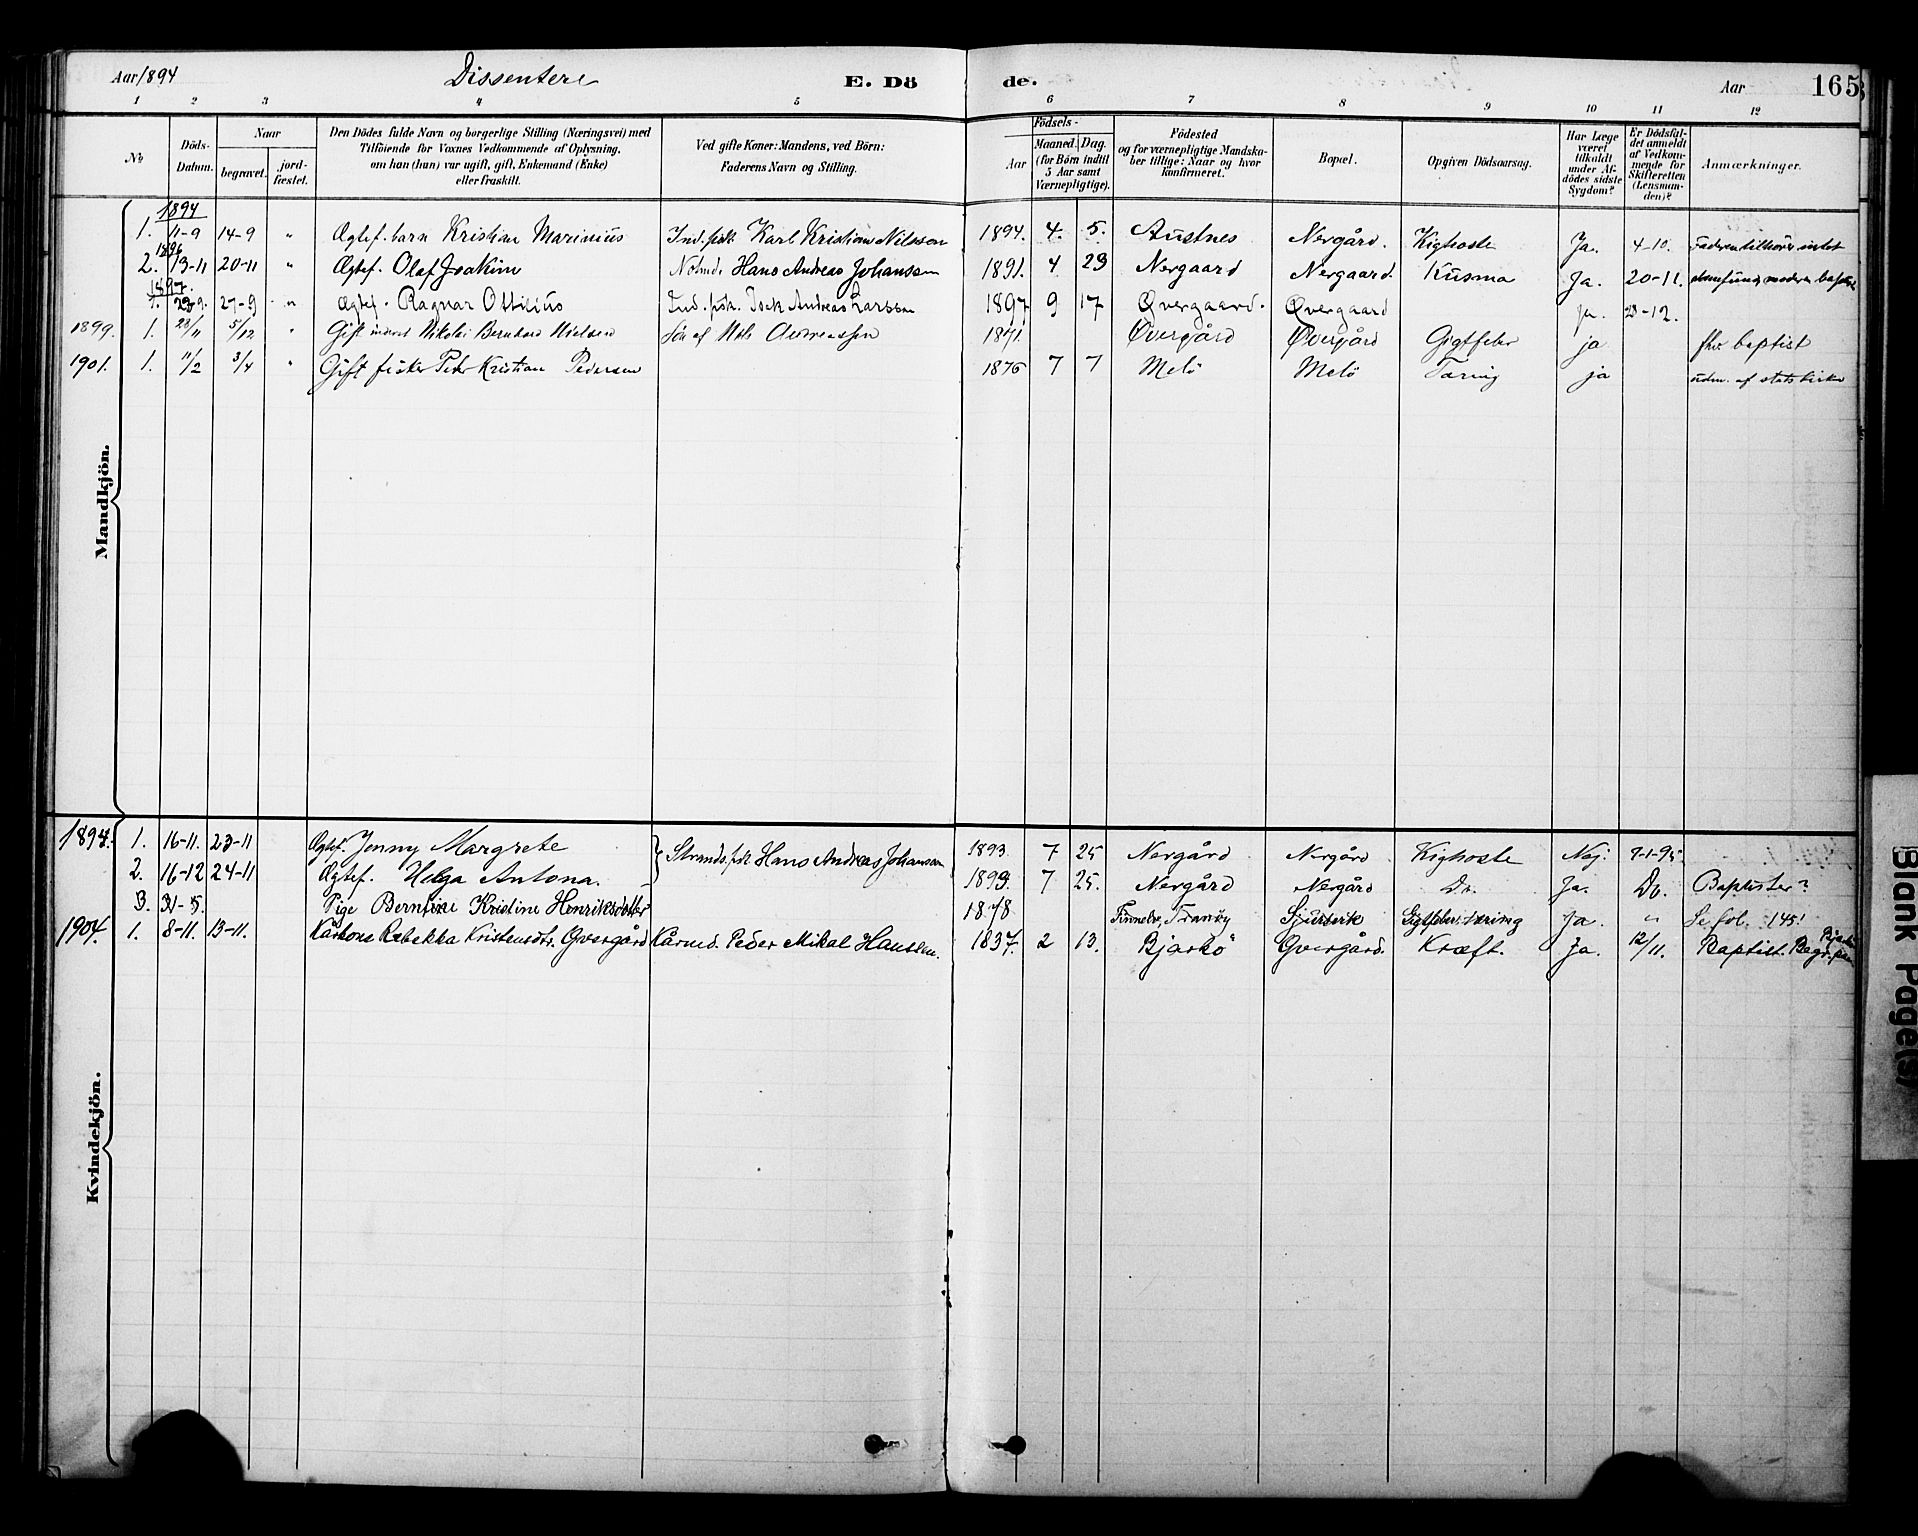 Aar 1894 Dissentere E. Dö de. Aar 165
1 2 3 4 5 6 7 8 9 10 11 12
№ Döds-Datum. Naar begravet. jord-fæstet. Den Dödes fulde Navn og borgerlige Stilling (Næringsvei) med Tilföiende for Voxnes Vedkommende af Oplysning, om han (hun) var ugift, gift, Enkemand (Enke) eller fraskilt. Ved gifte Koner: Mandens, ved Börn: Faderens Navn og Stilling. Födsels- Aar Maaned. Dag. (for Börn indtil 5 Aar samt Værnepligtige). Födested og for værnepligtige Mandskaber tillige: Naar og hvor konfirmeret. Bopæl. Opgiven Dödsaarsag. Har Læge været tilkaldt under Afdödes sidste Sygdom? Er Dödsfaldet anmeldt af Vedkommende for Skifteretten (Lensmanden)? Anmærkninger.
Mandkjön.
1894
1. 11-9 14-9 " Ægtef. barn Kristian Marinius Ind. fisk. Karl Kristians Nilsson 1894. 4. 5. Austnes Nergård. Kighoste Ja. 4-10. Faderen tilhører intet
1896
2. 13-11 20-11 " Ægtef. Olaf Joakim Hans Andreas Johansen 1891. 4 23 Nergaard Nergaard. Kusma Ja. 20-11. samfund, moderen baptist
1897.
1. 23-9. 27-9 " Ægtef. Ragnar Ottilius Ind. fisk. Andreas Larssen 1897 9 17 Øvergaard. Øvergaard ja. 23-12.
1899. 1. 23/11 5/12 " Gift inderst Nikolai Bernhard Nielsen Søn af Nils Andreassen 1871. Øvergård Øvergård Gigtfeber ja fhv baptist
1901. 1. 11/2 3/4 " Gift fisker Peder Kristian Pedersen 1876 7 7 Melö Melö Tæring ja udm. af statskirken
Kvindekjön.
1894. 1. 16-11. 23-11 Ægtef. Jenny Margrete } Strands. fisk. Hans Andreas Johansen 1893 7 25 Nergård Nergård Kighoste Nej. 7-1-95
2. 16-12 24-11 Ægtef. Helga Antona. 1893. 7 25. Nergård Nergård Do. Ja. Do. Baptister?
3. 31-5. Pige Berntine Kristine Henriksdatter 1878 Finnelv, Tranøy Sjursvik Gigtfeber, tæring Ja. " Se fol. 145!
1904. 1. 8-11. 13-11. Kårkone Rebekka Kristensdtr. Øvergård Kårmd. Peder Mikal Hanssen. 1837. 2 13. Bjarkö Øvergård. Kræft. Ja. 12/11. Baptist. Begr. paa Bjarkö
Blank Page(s)